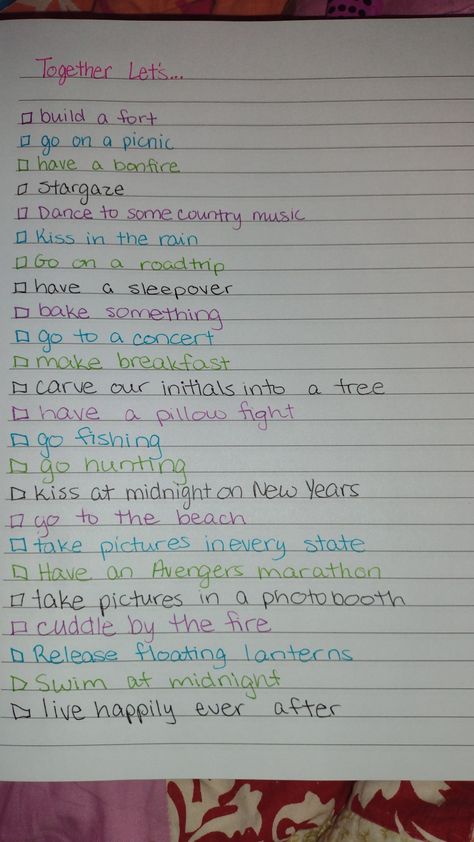 Together Let's...
build a fort
go on a picnic
have a bonfire
Stargaze
Dance to some country music
Kiss in the rain
Go on a roadtrip
have a sleepover
bake something
go to a concert
make breakfast
carve our initials into a tree
have a pillow fight
go fishing
go hunting
kiss at midnight on New Years
go to the beach
take pictures in every state
Have an Avengers marathon
take pictures in a photobooth
cuddle by the fire
Release floating lanterns
Swim at midnight
live happily ever after